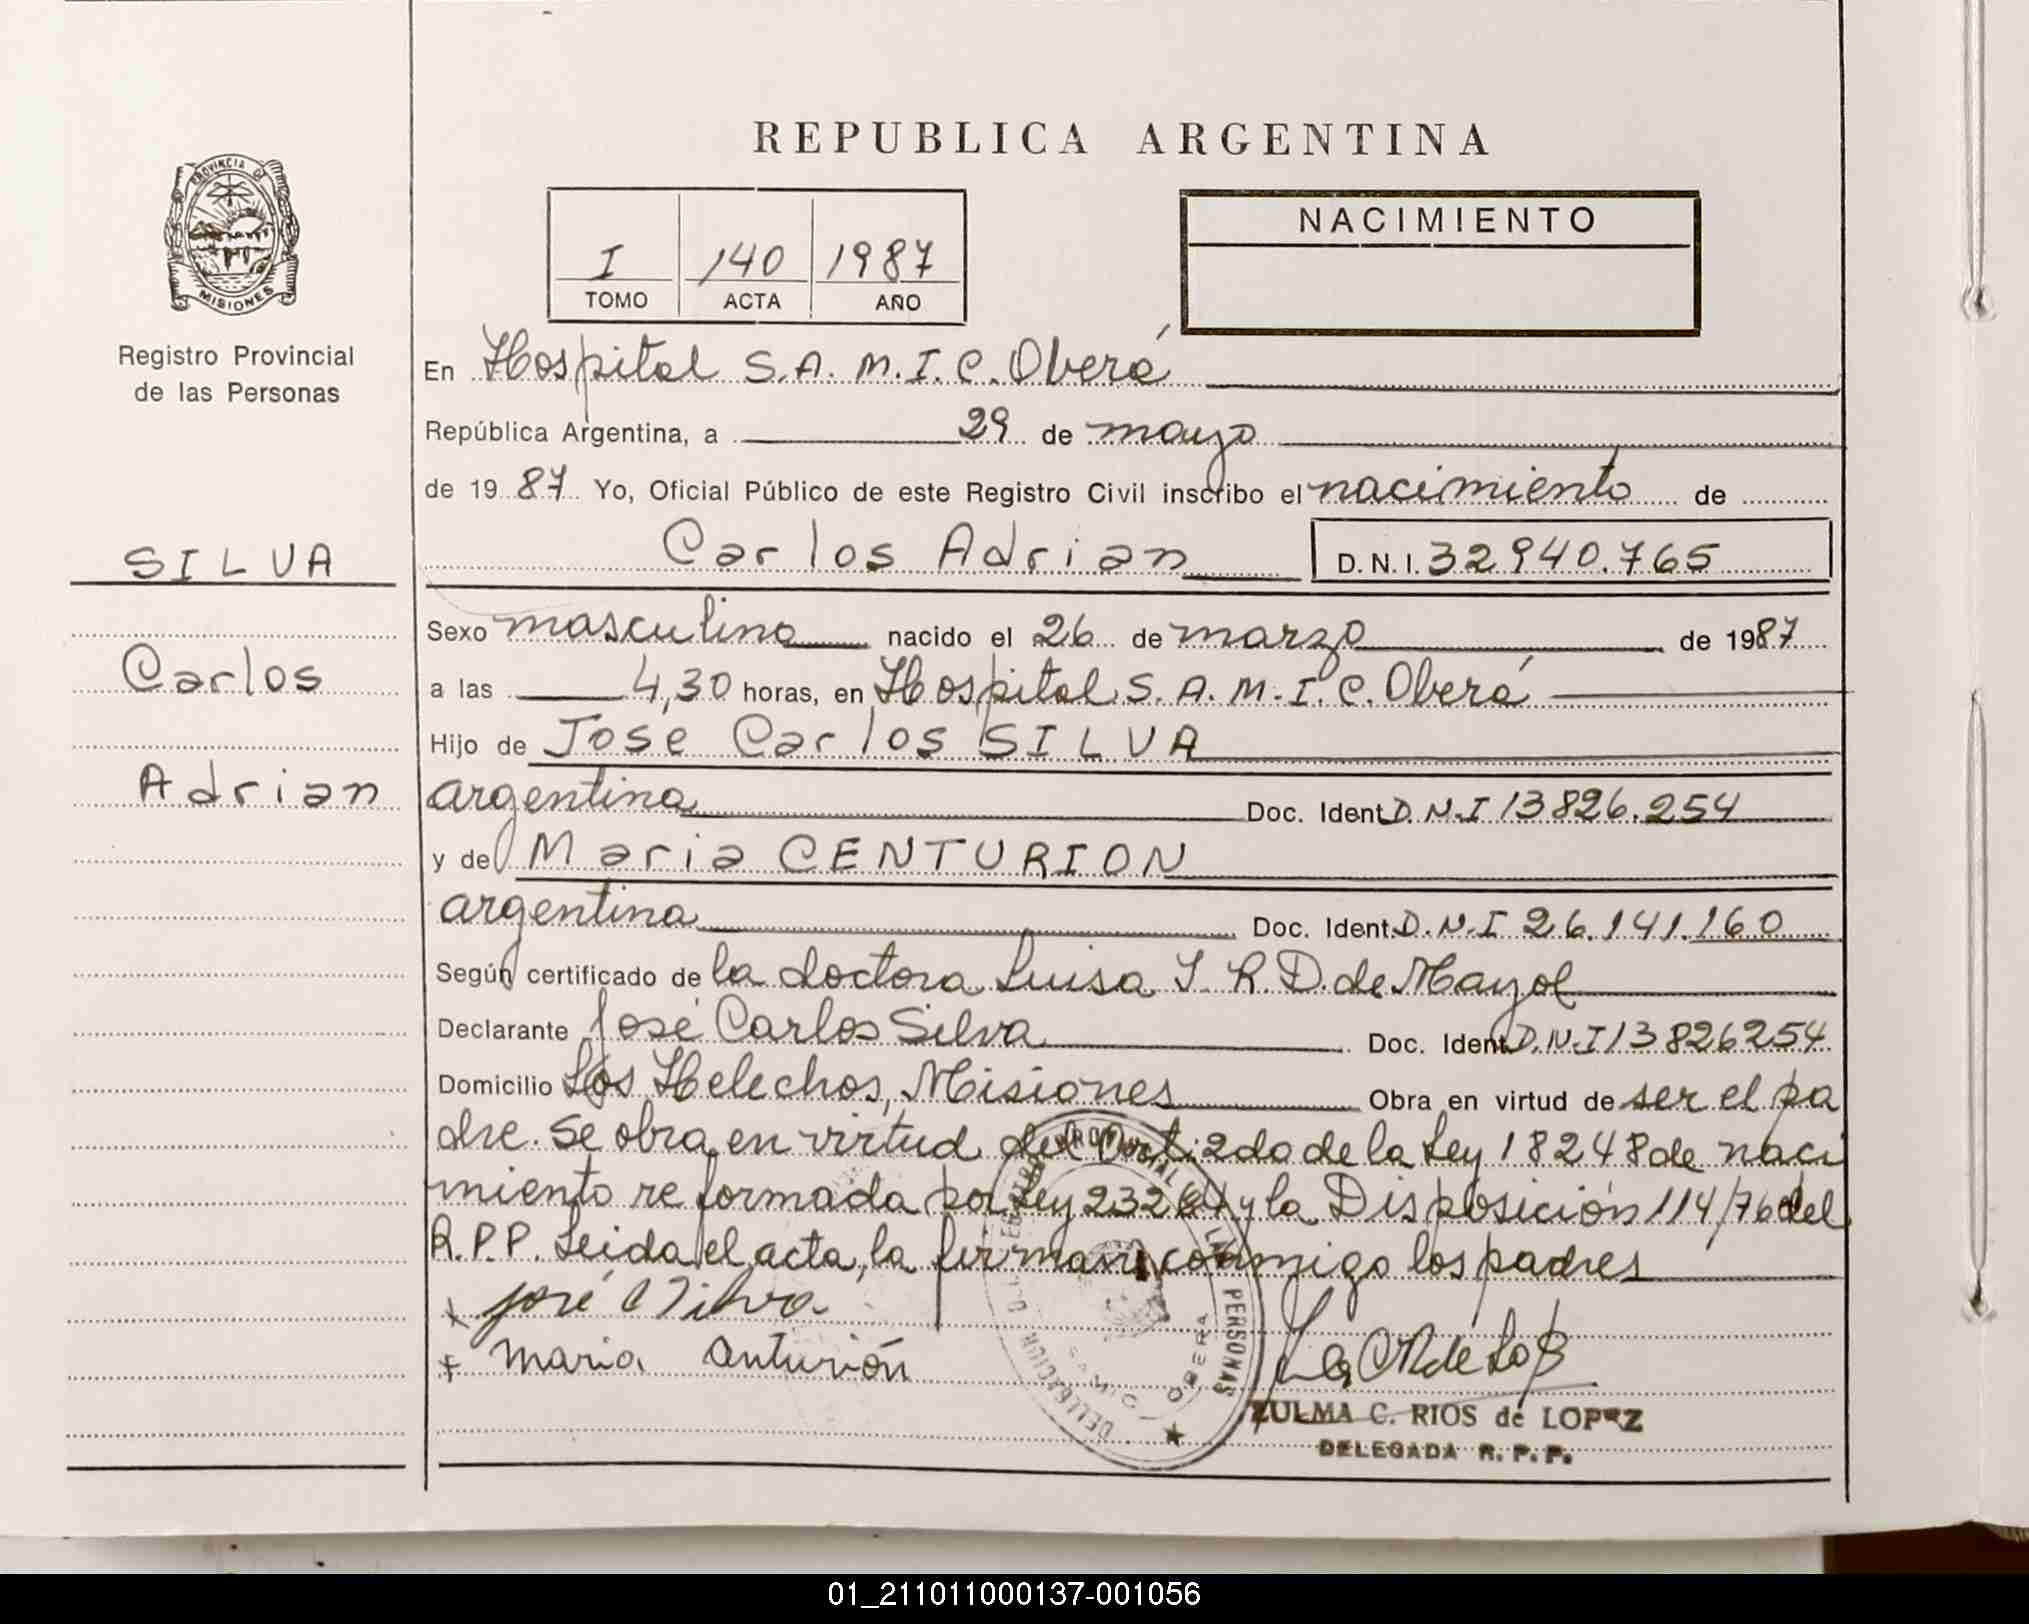 REPUBLICA ARGENTINA
PROVINCIA DE
MISIONES
Registro Provincial
de las Personas
SILVA
Carlos
Adrian
I 140 1987
TOMO ACTA AÑO
NACIMIENTO
En Hospital S.A.M.I.C. Oberá
República Argentina, a 29 de mayo
de 1987 Yo, Oficial Público de este Registro Civil inscribo el nacimiento de
Carlos Adrian D.N.I. 32940.765
Sexo masculino nacido el 26 de marzo de 1987
a las 4,30 horas, en Hospital S.A.M.I.C. Oberá
Hijo de José Carlos SILVA
argentina Doc. Ident. D.N.I 13826.254
y de Maria CENTURION
argentina Doc. Ident. D.N.I 26.141.160
Según certificado de la doctora Luisa R. D. de Mayol
Declarante José Carlos Silva Doc. Ident. D.N.I 13826254
Domicilio Los Helechos, Misiones Obra en virtud de ser el pa
dre. Se obra en virtud del Art: 2do de la Ley 18248 de naci
miento reformada por Ley 23264 y la Disposición 114/76 del
R.P.P. Leida el acta, la firman conmigo los padres
x José C Silva
+ Maria Centurión
REGISTRO PROVINCIAL DE LAS PERSONAS
DELEGACION
SAMIC OBERA
ZULMA C. RIOS de LOPEZ
DELEGADA R. P. P.
01_211011000137-001056